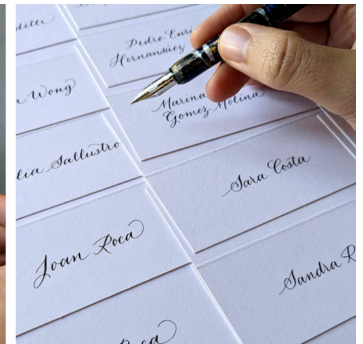 Pedro Enri
Hernansáez
Wong
Marina
Gomez Molina
lia Sallustro
Sara Costa
Joan Roca
Sandra R